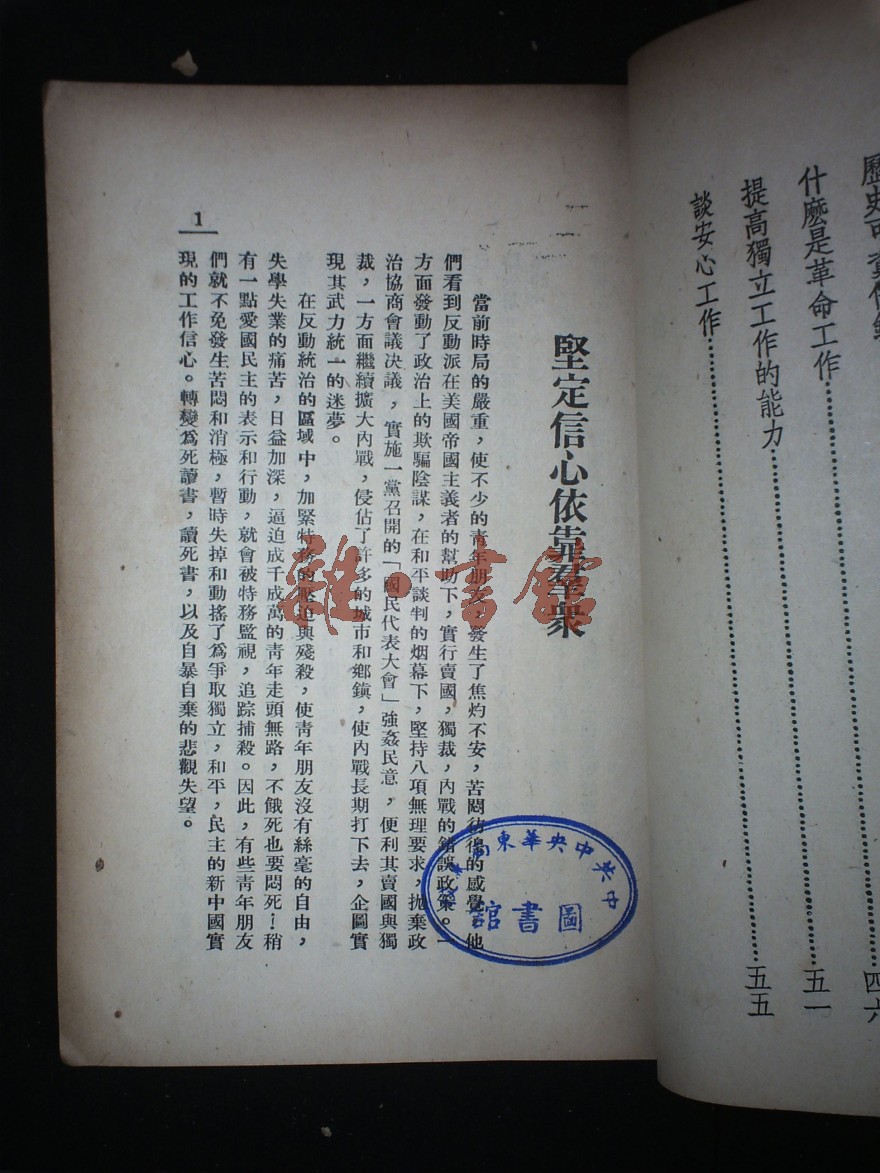 什麽是革命工作……五一
提高獨立工作的能力……五五
談安心工作
四六
堅定信心依靠羣衆
當前時局的嚴重，使不少的青年朋友，發生了焦灼不安，苦悶彷徨的感覺，他
們看到反動派在美國帝國主義者的幫助下，實行賣國，獨裁，內戰的錯誤政策。一
方面發動了政治上的欺騙陰謀，在和平談判的烟幕下，堅持八項無理要求，拋棄政
治協商會議决議，實施一黨召開的「國民代表大會」強姦民意，便利其賣國與獨
裁，一方面繼續擴大內戰，侵佔了許多的城市和鄉鎭，使內戰長期打下去，企圖實
現其武力統一的迷夢。
在反動統治的區域中，加緊特務的壓迫與殘殺，使靑年朋友沒有絲毫的自由，
失學失業的痛苦，日益加深，逼迫成千成萬的靑年走頭無路，不餓死也要悶死！稍
有一點愛國民主的表示和行動，就會被特務監視，追踪捕殺。因此，有些靑年朋友
們就不免發生苦悶和消極，暫時失掉和動搖了爲爭取獨立，和平，民主的新中國實
現的工作信心。轉變爲死讀書，讀死書，以及自暴自棄的悲觀失望。
1
中共中央華東局
圖書館
雜·書館